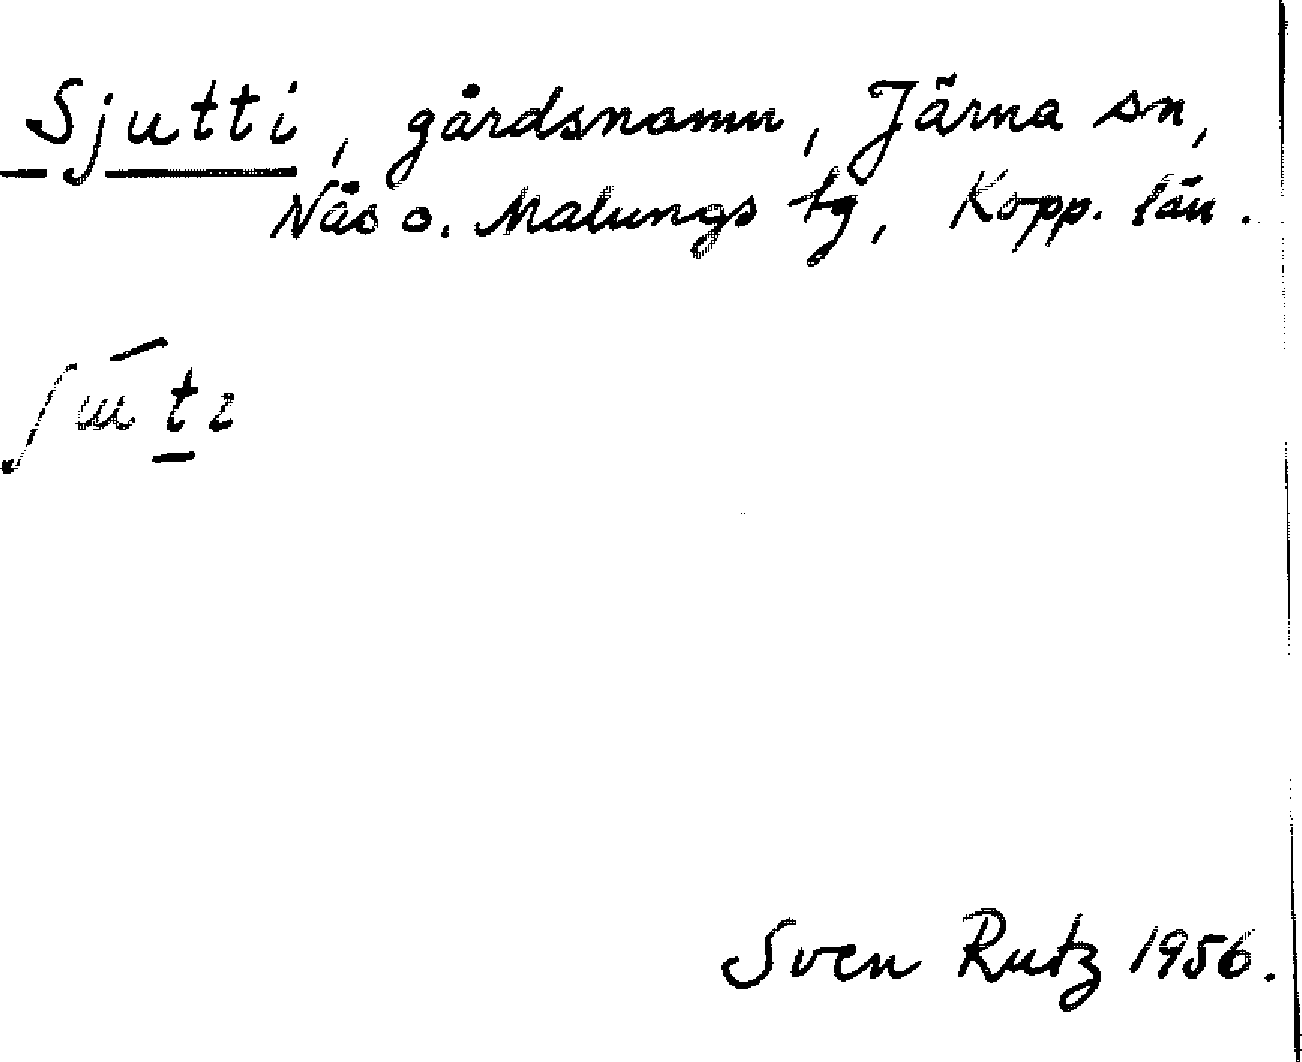 Sjutti, gårdsnamn, Järna sn,
Näs o. Malungs tg, Kopp. län.
Sven Rutz 1956.